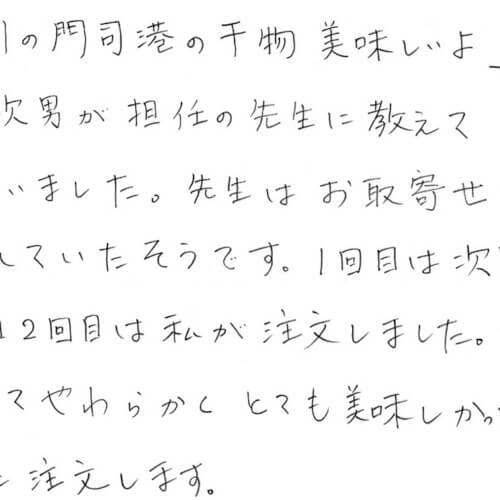 の門司港の干物 美味しいよ
次男が担任の先生に教えて
いました。先生はお取寄せ
していたそうです。1回目は次
2回目は私が注文しました。
てやわらかく とても美味しかっ
注文します。